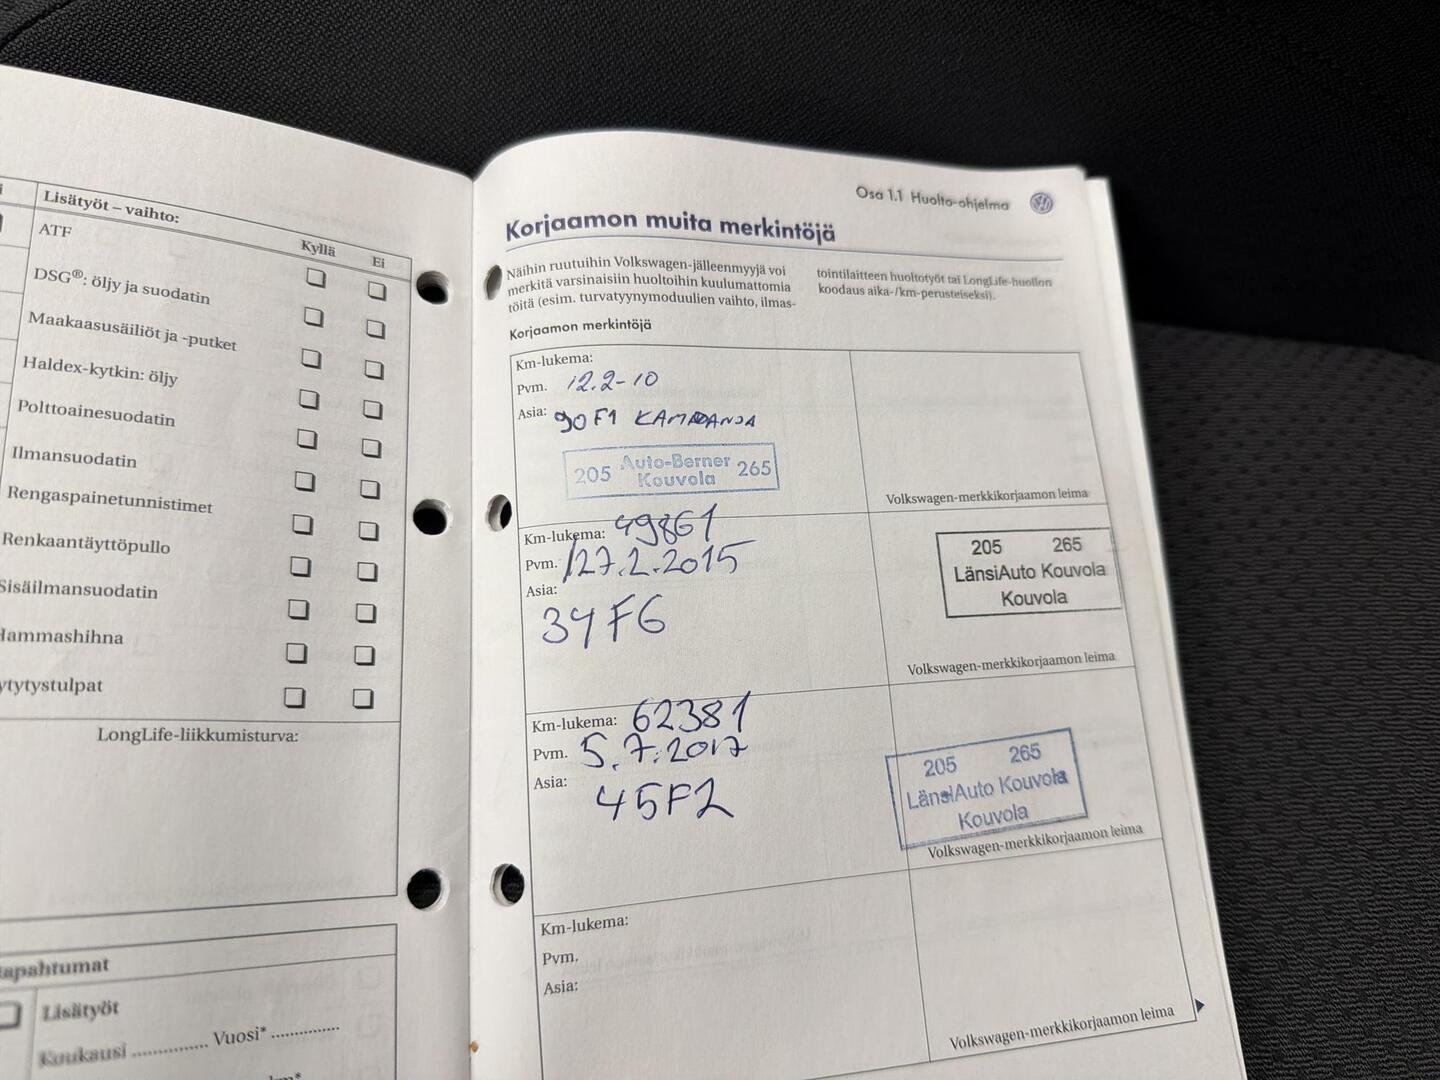 Lisätyöt – vaihto:
Kyllä Ei
ATF
DSG®: öljy ja suodatin
Maakaasusäiliöt ja -putket
Haldex-kytkin: öljy
Polttoainesuodatin
Ilmansuodatin
Rengaspainetunnistimet
Renkaantäyttöpullo
Sisäilmansuodatin
Hammashihna
ytytystulpat
LongLife-liikkumisturva:
apahtumat
Lisätyöt
Kuukausi .............. Vuosi* ..............
km*
Osa 1.1 Huolto-ohjelma
Korjaamon muita merkintöjä
Näihin ruutuihin Volkswagen-jälleenmyyjä voi
merkitä varsinaisiin huoltoihin kuulumattomia
töitä (esim. turvatyynymoduulien vaihto, ilmas-
tointilaitteen huoltotyöt tai LongLife-huollon
koodaus aika-/km-perusteiseksi).
Korjaamon merkintöjä
Km-lukema:
Pvm. 12.2-10
Asia: 90F1 KAMPANJA
205 Auto-Berner 265
Kouvola
Volkswagen-merkkikorjaamon leima
Km-lukema: 49861
Pvm. 27.2.2015
Asia:
34F6
205 265
LänsiAuto Kouvola
Kouvola
Volkswagen-merkkikorjaamon leima
Km-lukema: 62381
Pvm. 5.7.2017
Asia:
45F2
205 265
LänsiAuto Kouvola
Kouvola
Volkswagen-merkkikorjaamon leima
Km-lukema:
Pvm.
Asia:
Volkswagen-merkkikorjaamon leima